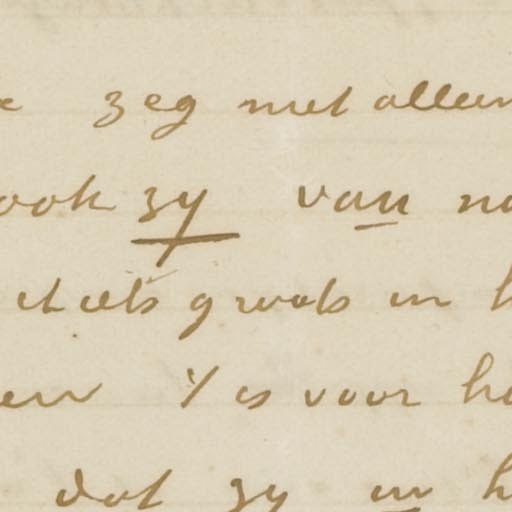 zeg niet alleen
ook zy van
iets groots in
is voor
dat zy in